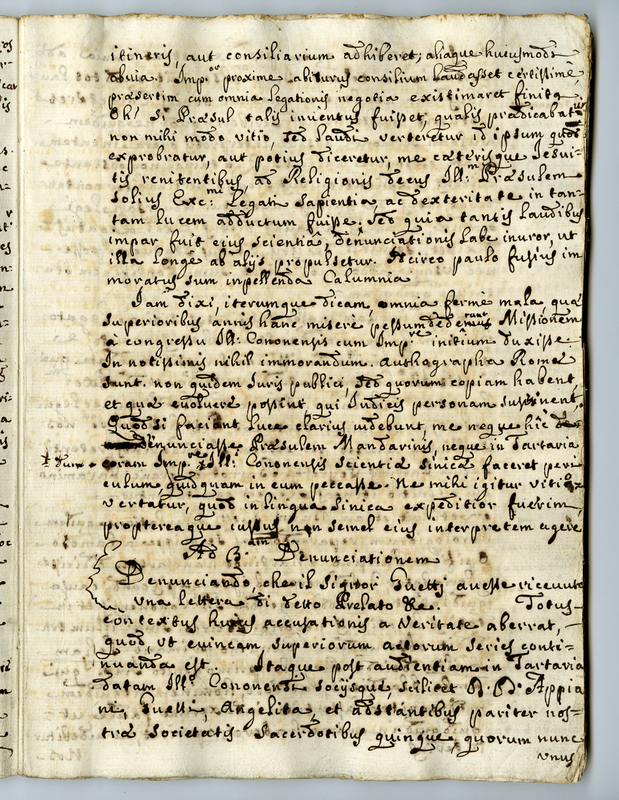 itineris, aut consiliarium adhiberet; aliaque hujusmodi
obvia. Imp.or proxime abiturus consilium laudasset certissimè
præsertim cum omnia legationis negotia existimaret finita
Oh! Si Præsul talis inventus fuisset, qualis prædicabatur
non mihi modo vitio, sed laudi verteretur id ipsum quod
exprobratur, aut potius diceretur, me cæterisque Jesui-
tis renitentibus, ad Religionis decus Ill: Præsulem
solius Exc:mi Legati sapientia ac dexteritate in tan-
tam lucem adductum fuisse. Sed quia tantis laudibus
impar fuit ejus scientia, denunciationis labe inuror, ut
illa longe ab alijs propulsetur. Idcirco paulo fusius im
moratus sum in pellenda Calumnia
Jam dixi, iterumque dicam, omnia fermè mala quæ
superioribus annis hanc miserè pessumdederunt Missionem
à congressu Ill: Cononensis cum Imp.re initium duxisse
In notissimis nihil immorandum. Authographa Romæ
sunt. non quidem Juris publici, sed quorum copiam habent,
et quæ evoluere possint, qui Judicis personam sustinent.
Quod si faciant luce clarius videbunt, me neque hîc de
denunciasse Præsulem Mandarinis, neque in Tartaria
‡ dum coram Imp.re ‡ Ill: Cononensis scientiæ sinicæ faceret peri
culum quidquam in eum peccasse. Ne mihi igitur vitio
vertatur, quod in lingua sinica expeditior fuerim,
proptereaque jussus non semel ejus interpretem agere
Ad 3.am Denunciationem
Denunciando, che il Signor Guetti avesse ricevuto
una lettera di detto Prelato &c. Totus
contextus hujus accusationis a veritate aberrat,
quod, ut evincam, superiorum actorum series conti-
nuanda est. Itaque post audientiam in Tartaria
datam Ill: Cononensi socijsque scilicet D. D. Appia
ni, Guetti, Angelita, et adstantibus pariter nos-
træ Societatis Sacerdotibus quinque, quorum nunc
unus